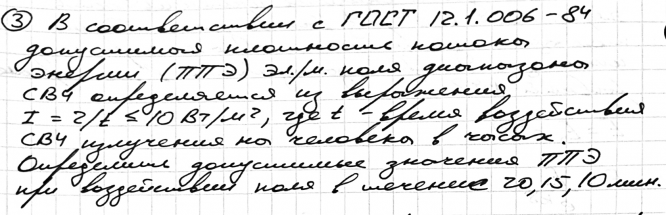 ③ В соответствии с ГОСТ 12.1.006-84
допустимая плотность потока
энергии (ППЭ) эл./м. поля диапазона
СВЧ определяется из выражения
I = 2/t ≤ 10 Вт/м², где t - время воздействия
СВЧ излучения на человека в часах.
Определить допустимые значения ППЭ
при воздействии поля в течение 20, 15, 10 мин.